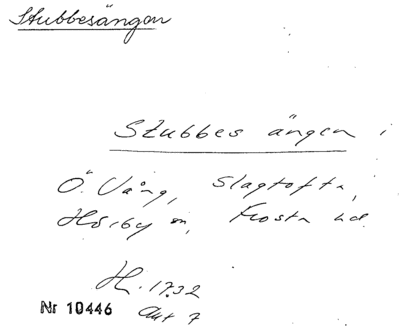 Stubbesängen
Stubbes ängen i
Ö. Vång, Slagtofta,
Hörby sn, Frosta hd.
H. 1732
Nr 10446 Akt 7